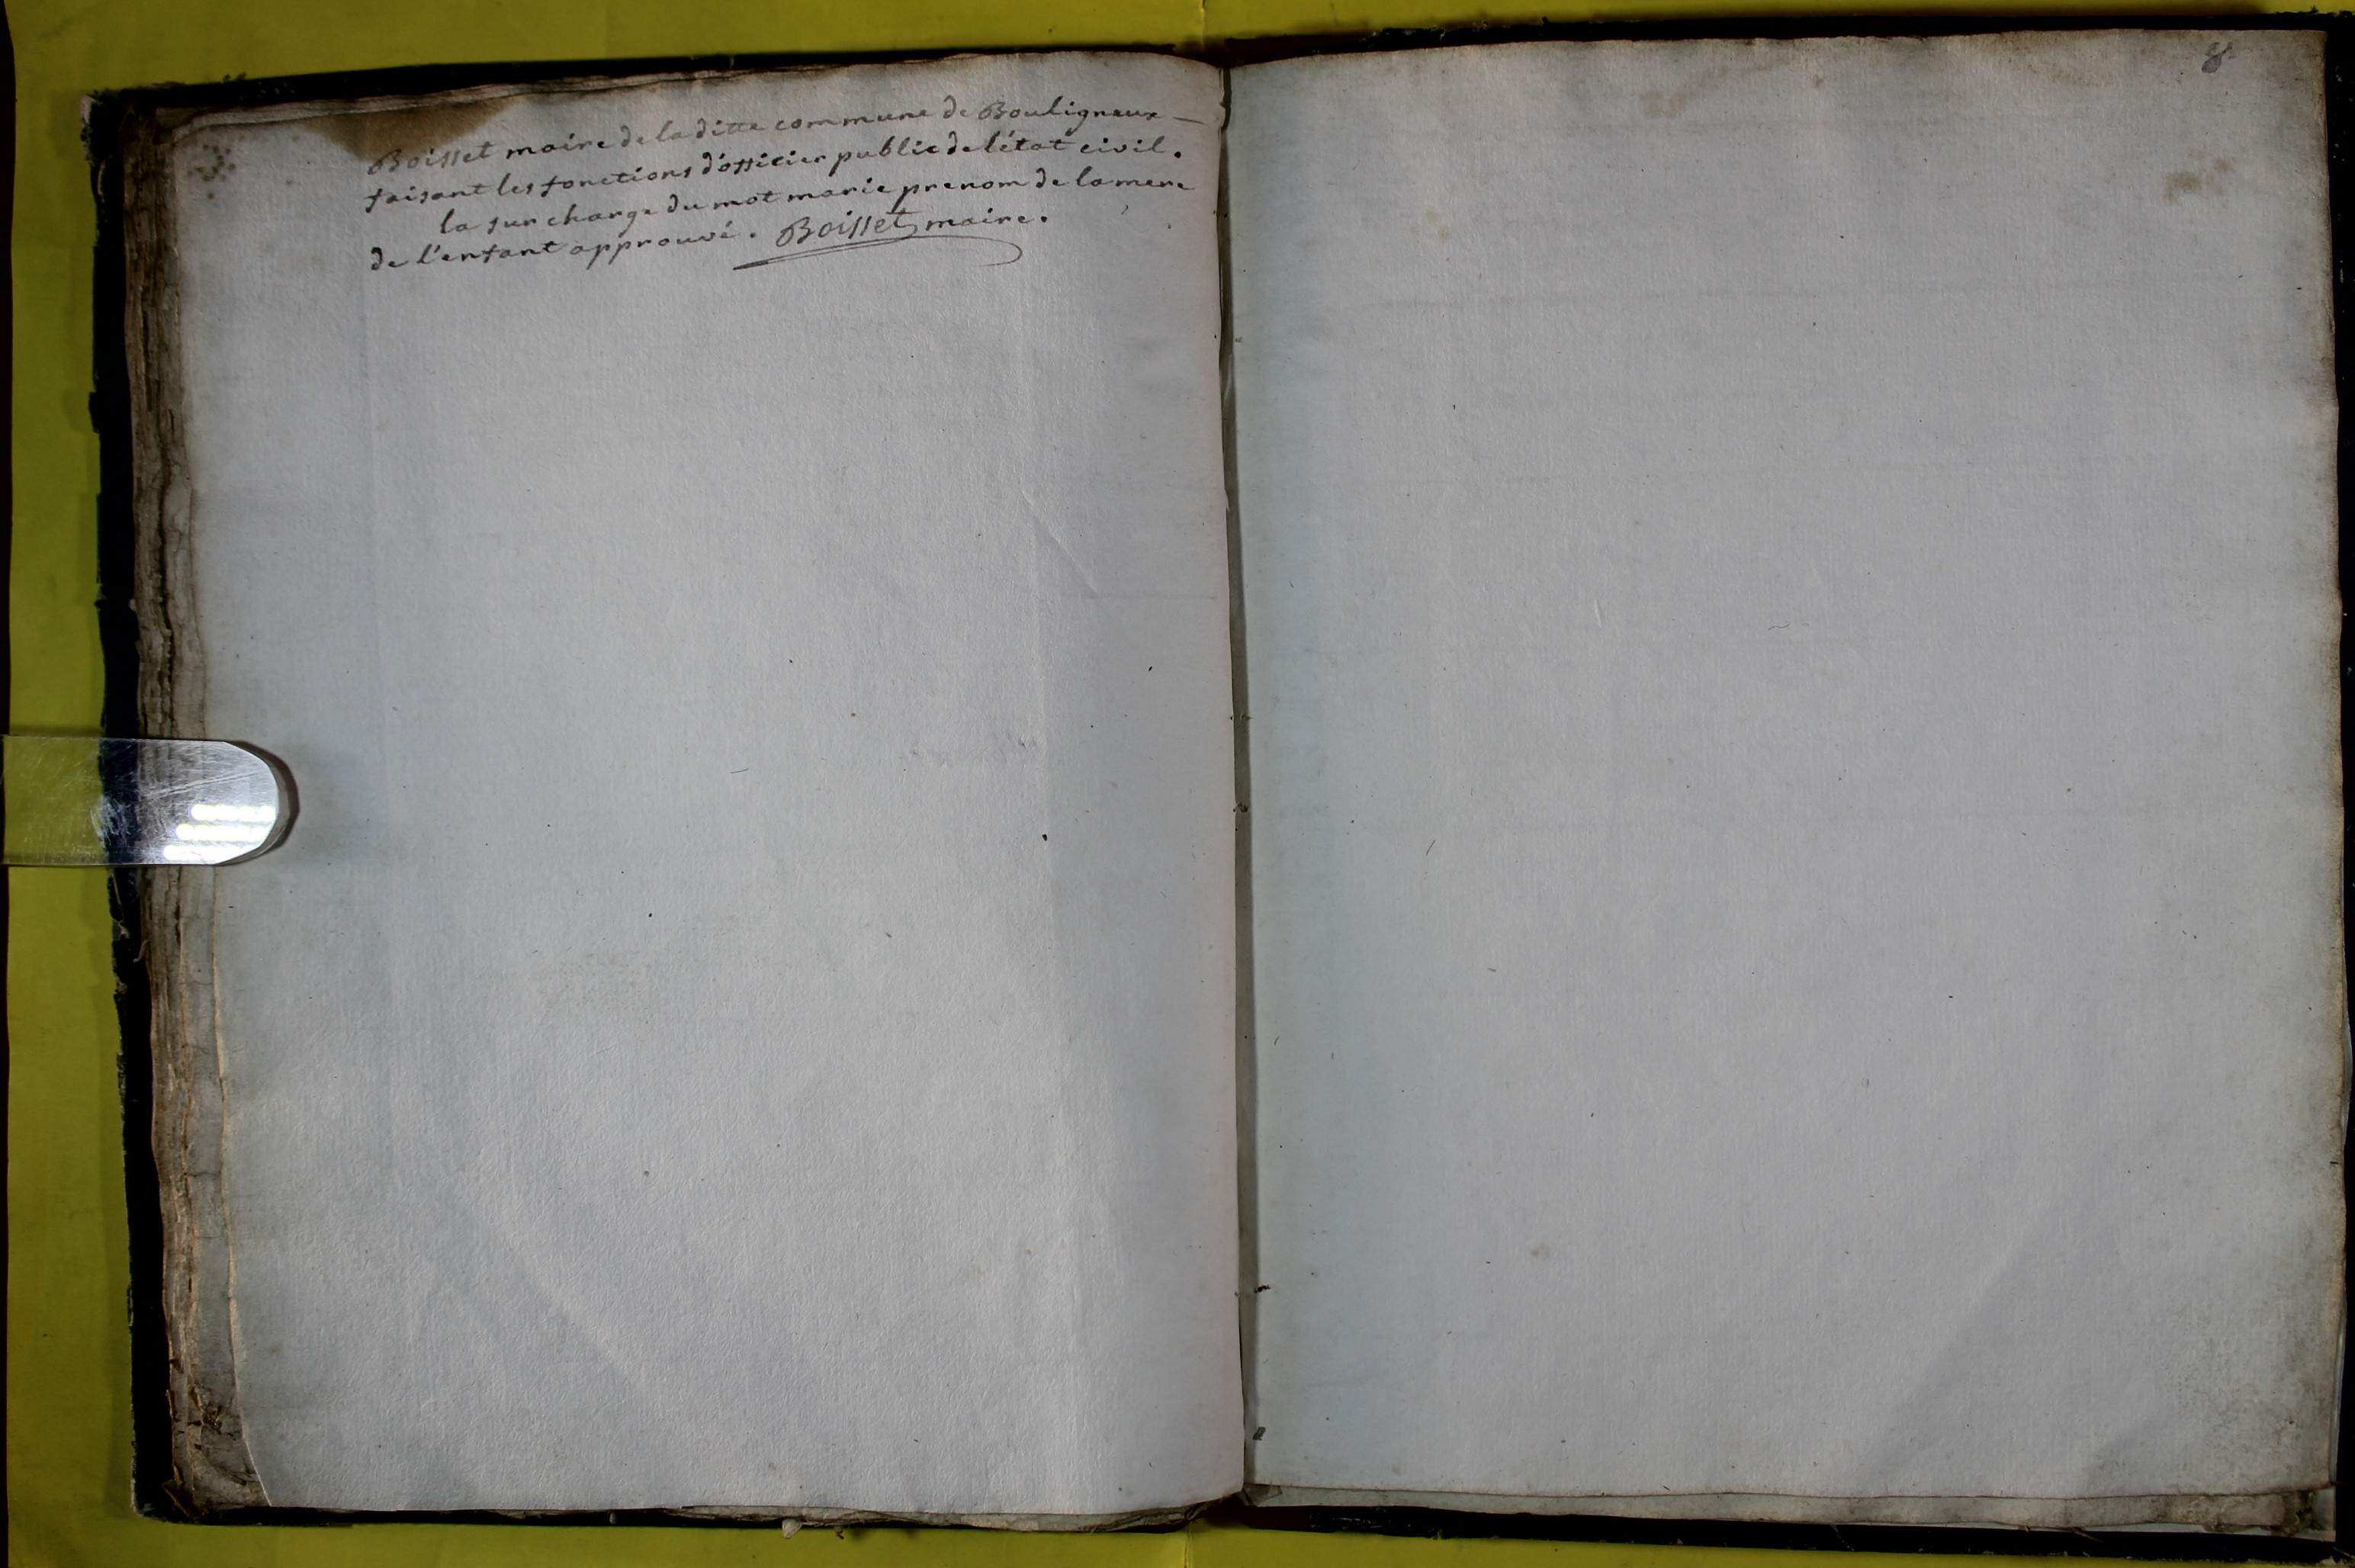 Boisset maire de la ditte commune de Bouligneux —
faisant les fonctions d'officier public de l'état civil.
la sur charge du mot marie prenom de la mere
de l'enfant approuvé. Boisset maire.
8